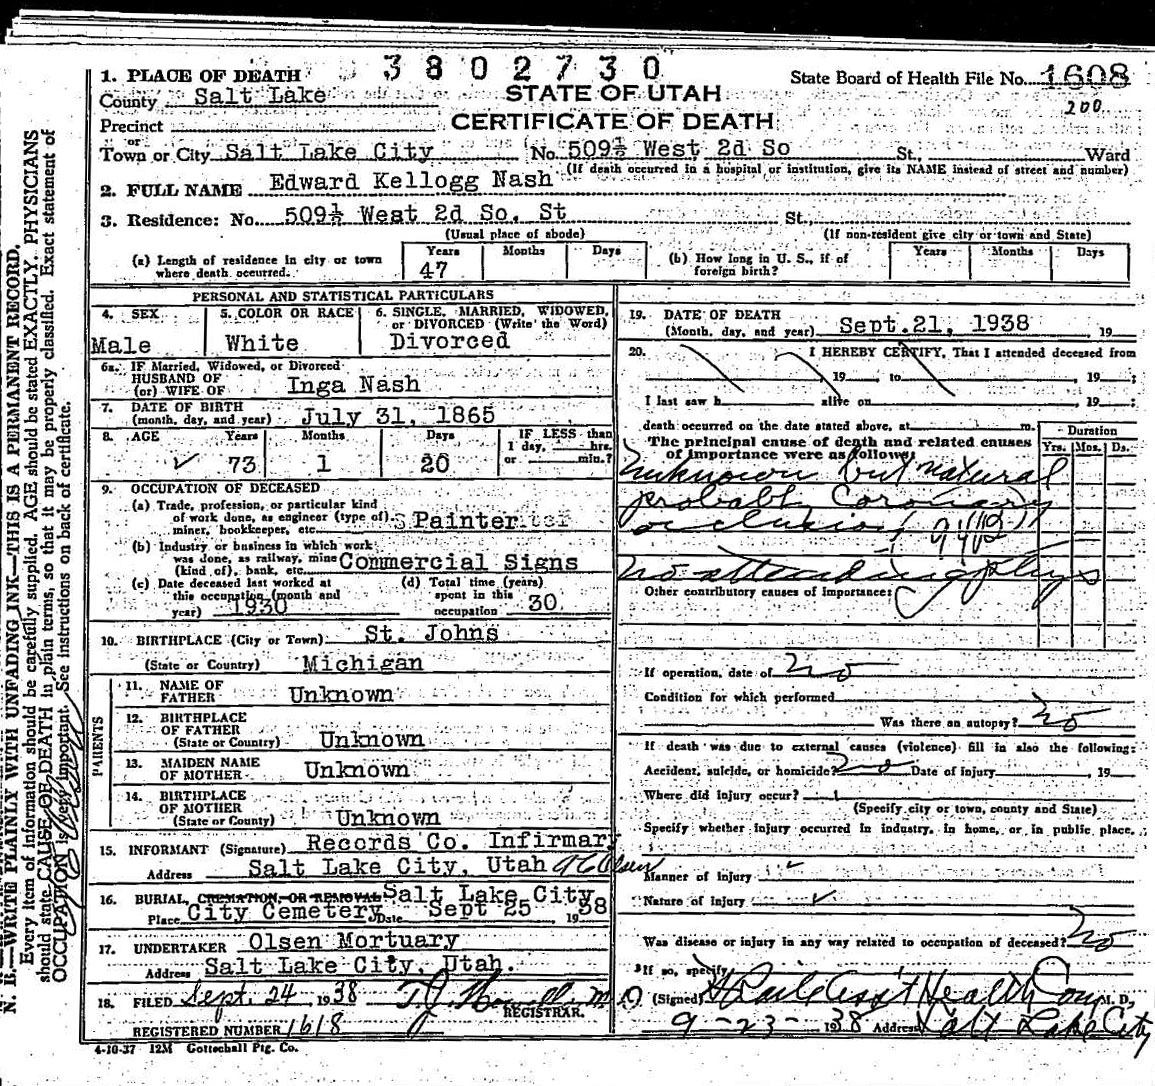 3 8 0 2 7 3 0
1. PLACE OF DEATH
State Board of Health File No. 1608
County Salt Lake
STATE OF UTAH
200
Precinct
CERTIFICATE OF DEATH
or
Town or City Salt Lake City No. 509½ West 2d So St., Ward
(If death occurred in a hospital or institution, give its NAME instead of street and number)
2. FULL NAME Edward Kellogg Nash
3. Residence: No. 509½ West 2d So. St St.
(Usual place of abode) (If non-resident give city or town and State)
(a) Length of residence in city or town where death occurred. Years 47 Months Days
(b) How long in U. S., if of foreign birth? Years Months Days
PERSONAL AND STATISTICAL PARTICULARS
4. SEX Male
5. COLOR OR RACE White
6. SINGLE, MARRIED, WIDOWED, or DIVORCED (Write the Word) Divorced
6a. IF Married, Widowed, or Divorced
HUSBAND OF
(or) WIFE OF Inga Nash
7. DATE OF BIRTH
(month, day, and year) July 31, 1865
8. AGE Years 73 Months 1 Days 20 IF LESS than 1 day, hrs. or min.?
9. OCCUPATION OF DECEASED
(a) Trade, profession, or particular kind
of work done, as engineer (type of), Painter
miner, bookkeeper, etc.
(b) Industry or business in which work
was done, as railway, mine Commercial Signs
(kind of), bank, etc.
(c) Date deceased last worked at this occupation (month and year) 1930
(d) Total time (years) spent in this occupation 30
10. BIRTHPLACE (City or Town) St. Johns
(State or Country) Michigan
PARENTS
11. NAME OF FATHER Unknown
12. BIRTHPLACE OF FATHER
(State or Country) Unknown
13. MAIDEN NAME OF MOTHER Unknown
14. BIRTHPLACE OF MOTHER
(State or Country) Unknown
15. INFORMANT (Signature) Records Co. Infirmary
Address Salt Lake City, Utah
16. BURIAL, CREMATION, OR REMOVAL Salt Lake City
Place City Cemetery Date Sept 25 1938
17. UNDERTAKER Olsen Mortuary
Address Salt Lake City, Utah.
18. FILED Sept. 24, 1938
REGISTRAR.
REGISTERED NUMBER 1618
4-10-37 12M Gottschall Ptg. Co.
19. DATE OF DEATH
(Month, day, and year) Sept. 21, 1938 19
20. I HEREBY CERTIFY, That I attended deceased from
, 19 to , 19 ;
I last saw h alive on 19 ;
death occurred on the date stated above, at m.
The principal cause of death and related causes
of importance were as follows:
Duration
Yrs. Mos. Ds.
unknown but natural
probably Coronary
occlusion
no attending phys
Other contributory causes of importance:
If operation, date of no
Condition for which performed
Was there an autopsy? no
If death was due to external causes (violence) fill in also the following:
Accident, suicide, or homicide? no Date of injury , 19
Where did injury occur?
(Specify city or town, county and State)
Specify whether injury occurred in industry, in home, or in public place.
Manner of injury
Nature of injury
Was disease or injury in any way related to occupation of deceased? no
If so, specify
(Signed) Ass't Health Com M. D.
9-23-1938 Address Salt Lake City
N. B.—WRITE PLAINLY WITH UNFADING INK—THIS IS A PERMANENT RECORD.
Every item of information should be carefully supplied. AGE should be stated EXACTLY. PHYSICIANS
should state CAUSE OF DEATH in plain terms, so that it may be properly classified. Exact statement of
OCCUPATION is very important. See instructions on back of certificate.